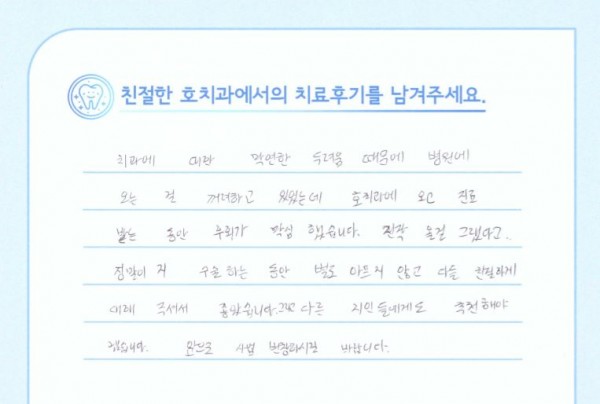 친절한 호치과에서의 치료후기를 남겨주세요.
치과에 대한 막연한 두려움 때문에 병원에
오는 걸 꺼려하고 있었는데 호치과에 오고 진료
받는 동안 후회가 막심 했습니다. 진작 올걸 그랬다고..
치료 하는 동안 별로 아프지 않고 다들 친절하게
대해 주셔서 좋았습니다. 그리고 다른 지인들에게도 추천해야
겠습니다. 앞으로 사업 번창하시길 바랍니다.